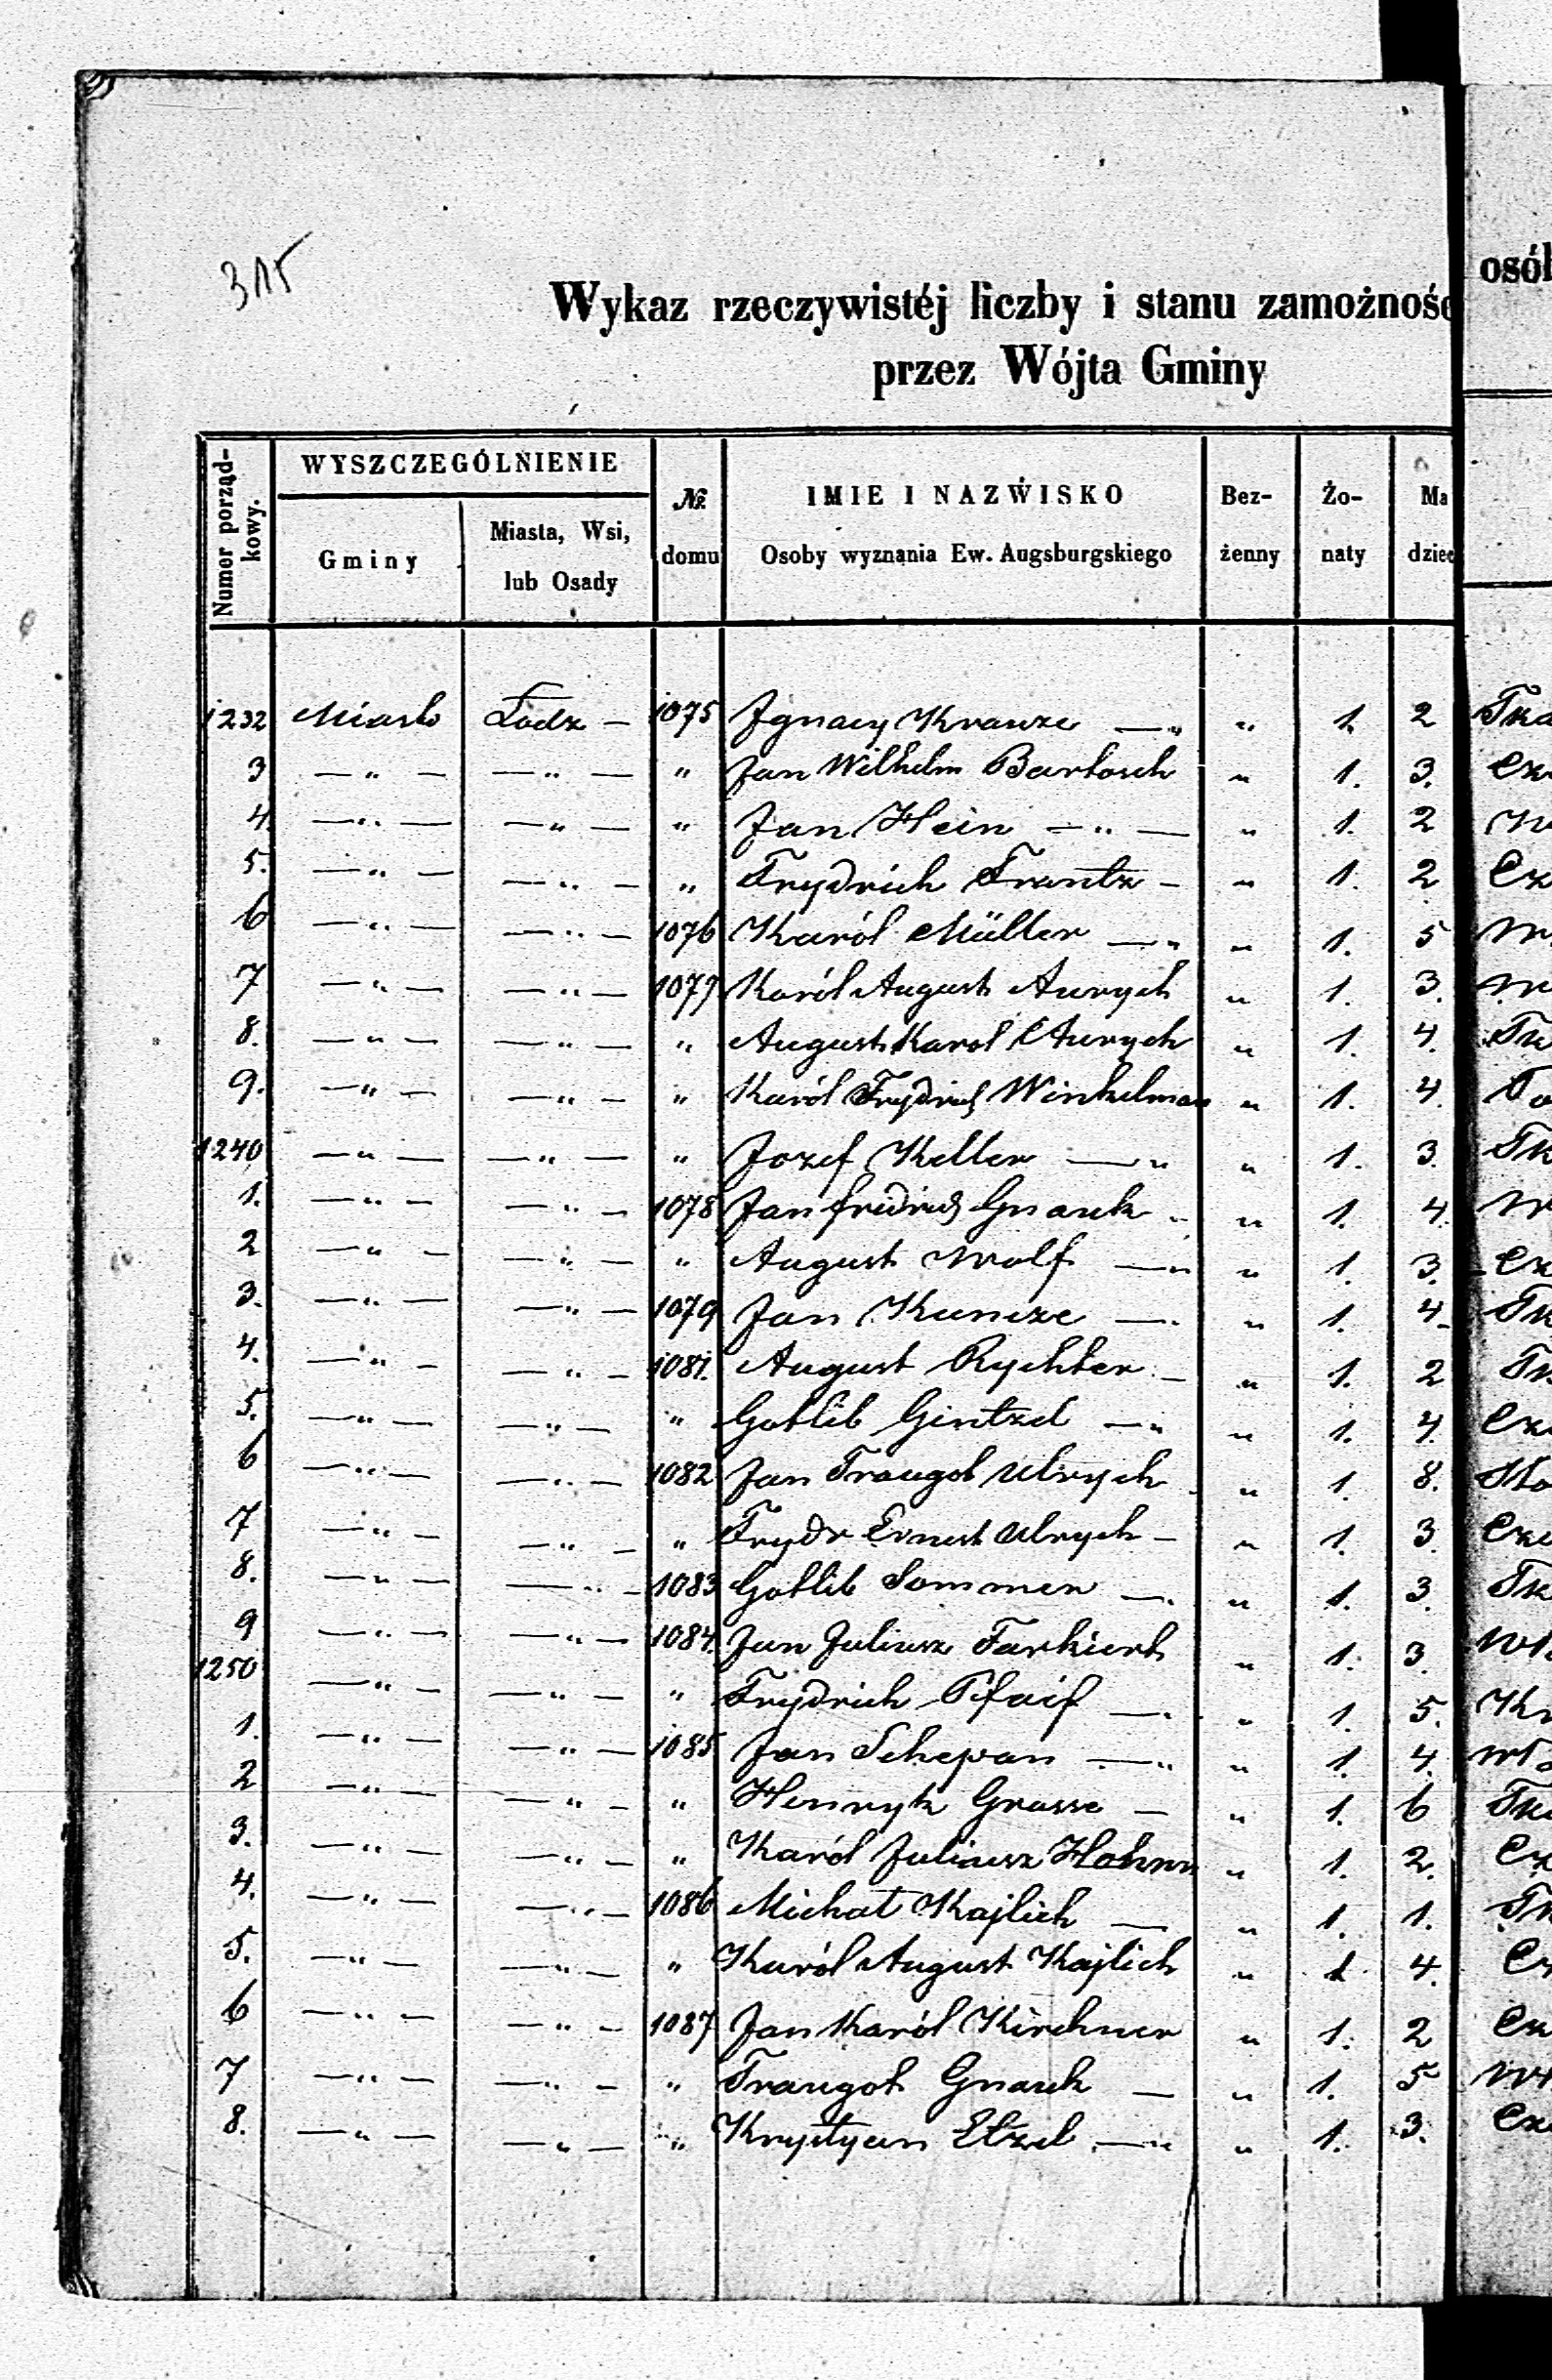 315
Wykaz rzeczywistéj liczby i stanu zamożnośc
osób
przez Wójta Gminy
Numer porząd-
kowy.
WYSZCZEGÓLNIENIE
Gminy
Miasta, Wsi,
lub Osady
№
domu
IMIE I NAZWISKO
Osoby wyznania Ew. Augsburgskiego
Bez-
żenny
Żo-
naty
Ma
dziec
1232 Miasto Łodz — 1075 Jgnacy Krauze — " " 1. 2 Tka
3 — " — — " — " Jan Wilhelm Bartosch " 1. 3. Cze
4. — " — — " — " Jan Hein — " — " 1. 2
5. — " — — " — " Frydrich Frantz — " 1. 2 Cz
6 — " — — " — 1076 Karól Müller — " " 1. 5
7 — " — — " — 1077 Karól August Aurych " 1. 3.
8. — " — — " — " August Karol Aurych " 1. 4. Tk
9. — " — — " — " Karól Frydrich Winkelman " 1. 4.
1240 — " — — " — " Jozef Keller — " " 1. 3. Tk
1. — " — — " — 1078 Jan fridrich Gnauk " " 1. 4.
2 — " — — " — " August Wolf — " " 1. 3. Cz
3. — " — — " — 1079 Jan Kuncze — " " 1. 4 Tk
4. — " — — " — 1081. August Rychter — " 1. 2 Tk
5. — " — — " — " Gotlib Gintzel — " " 1. 4. Cze
6 — " — — " — 1082 Jan Traugot Ulrych " 1. 8.
7 — " — — " — " Frydr Ernest Ulrych — " 1. 3. Cze
8. — " — — " — 1083 Gotlib Sommer — " 1. 3. Tk
9 — " — — " — 1084. Jan Juliusz Tarkiert " 1. 3.
1250 — " — — " — " Frydrich Pfaif — " 1. 5.
1. — " — — " — 1085 Jan Schepan — " " 1. 4.
2 — " — — " — " Henryk Grasse — " 1. 6 Tka
3. — " — — " — " Karól Juliusz " 1. 2. Cz
4. — " — — " — 1086 Michał Kajlich — " 1. 1. Tk
5. — " — — " — " Karól August Kajlich " 1 4. Cz
6 — " — — " — 1087 Jan Karól Kirchner " 1. 2 Cz
7 — " — — " — " Traugot Gnauk — " 1. 5
8. — " — — " — " Krystyan Etzel — " " 1. 3. Cze